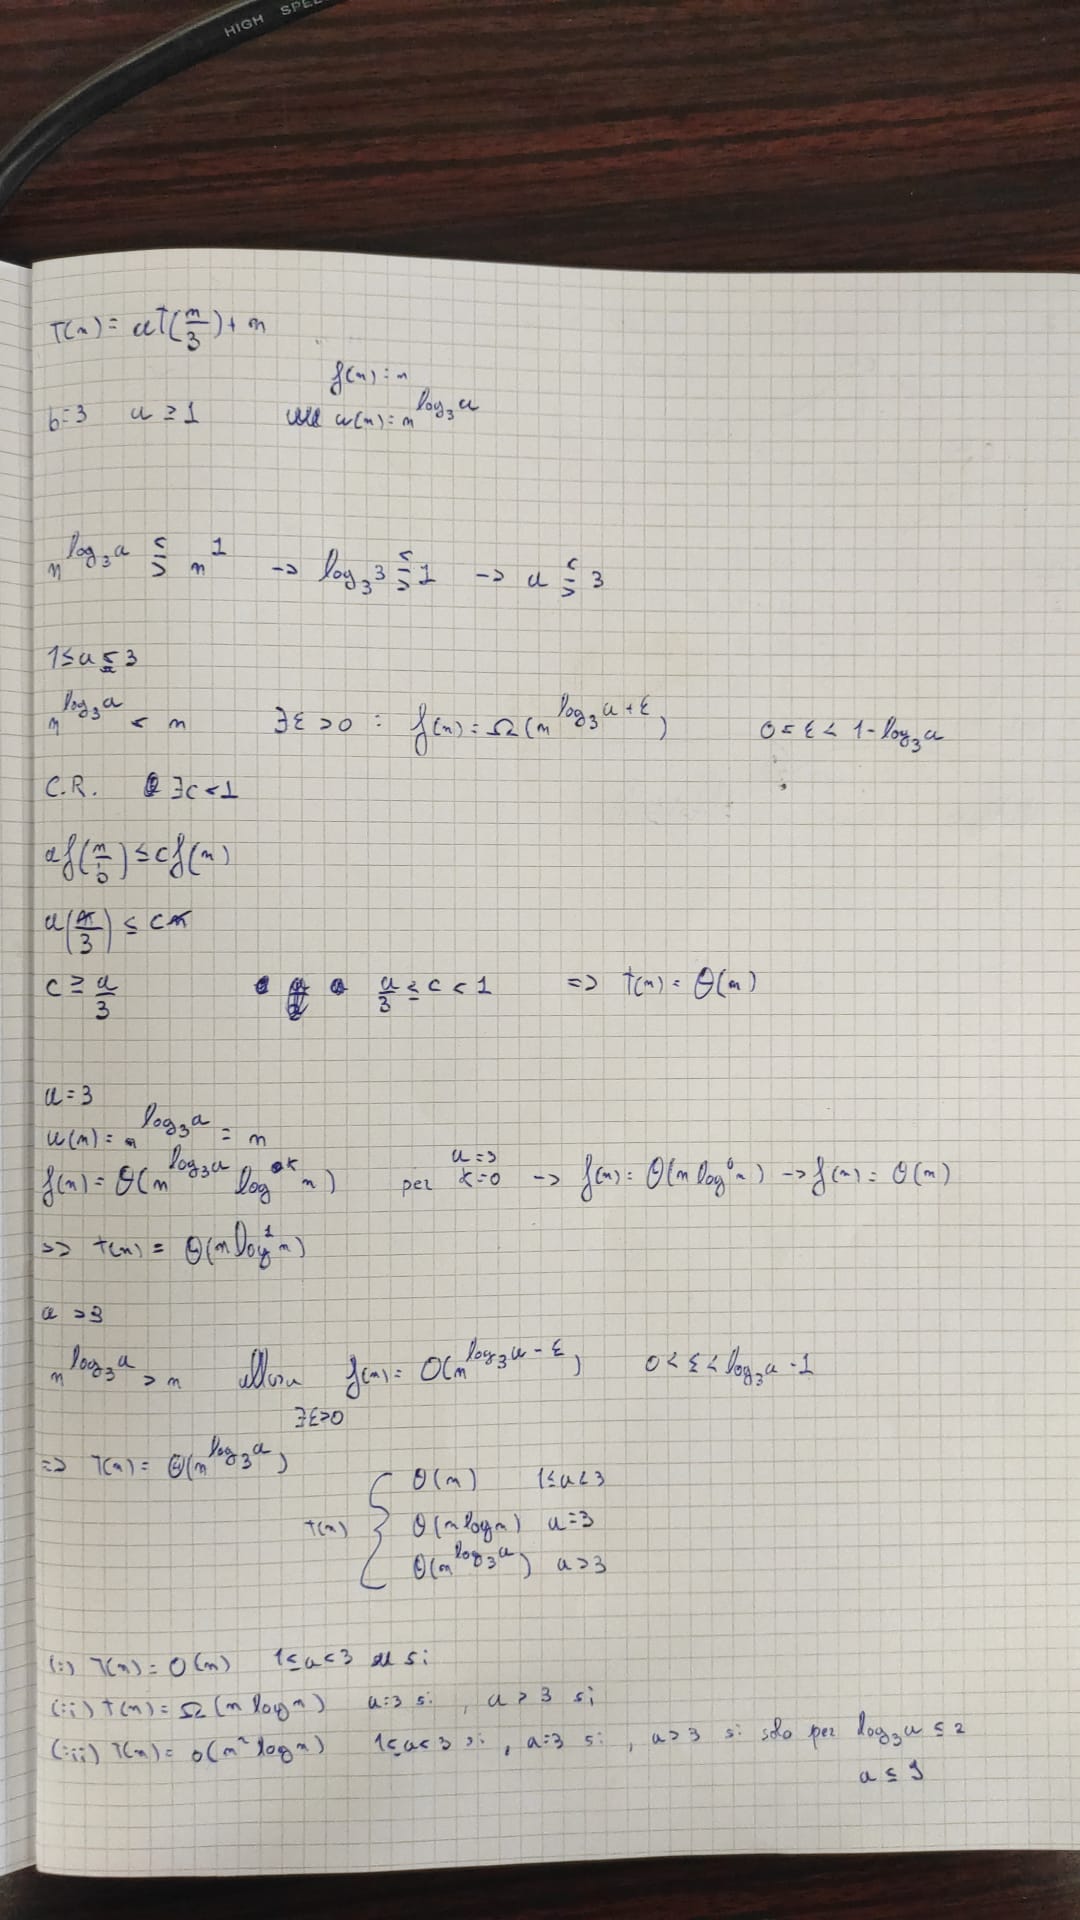 HIGH SPEE
T(n) = aT(n/3) + n
f(n) = n
b=3 a ≥ 1 w(n) = n^log₃a
n^log₃a ⋚ n^1 -> log₃3 ⋚ 1 -> a ⋚ 3
1≤a≤3
n^log₃a < n ∃ε>0 : f(n) = Ω(n^log₃a+ε) 0 ≤ ε < 1-log₃a
C.R. ∃c<1
af(n/b) ≤ cf(n)
a(n/3) ≤ cn
c ≥ a/3 a/3 ≤ c < 1 => T(n) = Θ(n)
a=3
w(n) = n^log₃a = n
f(n) = Θ(n^log₃a log^k n) per a=3 k=0 -> f(n) = Θ(n log^0 n) -> f(n) = Θ(n)
=> T(n) = Θ(n log^1 n)
a >3
n^log₃a > n allora f(n) = O(n^log₃a-ε) 0 < ε < log₃a - 1
∃ε>0
=> T(n) = Θ(n^log₃a)
T(n) { Θ(n) 1≤a<3
Θ(n log n) a=3
Θ(n^log₃a) a>3
(i) T(n) = O(n) 1≤a<3 si
(ii) T(n) = Ω(n log n) a=3 si, a > 3 si
(iii) T(n) = o(n² log n) 1≤a<3 si, a=3 si, a>3 si solo per log₃a ≤ 2
a ≤ 9